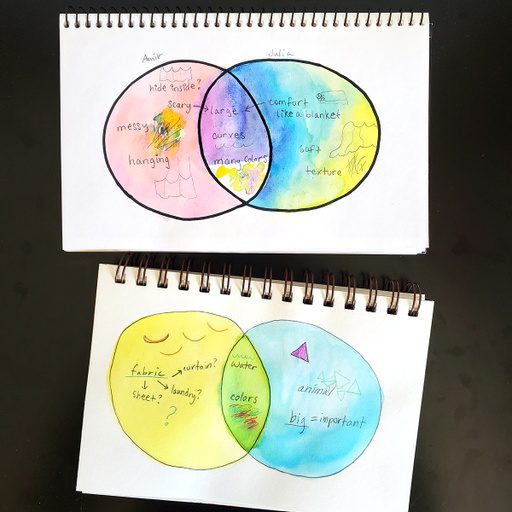 Amir
Julia
hide inside?
scary
messy
hanging
large
curves
many colors
comfort
like a blanket
soft
texture
fabric
curtain?
sheet?
laundry?
?
water
colors
animal
big = important